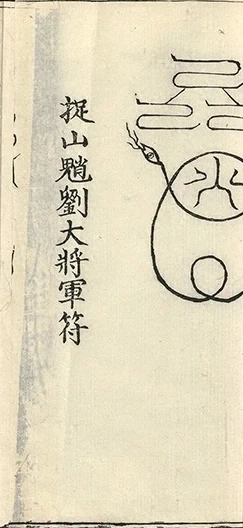 捉山魈劉大將軍符